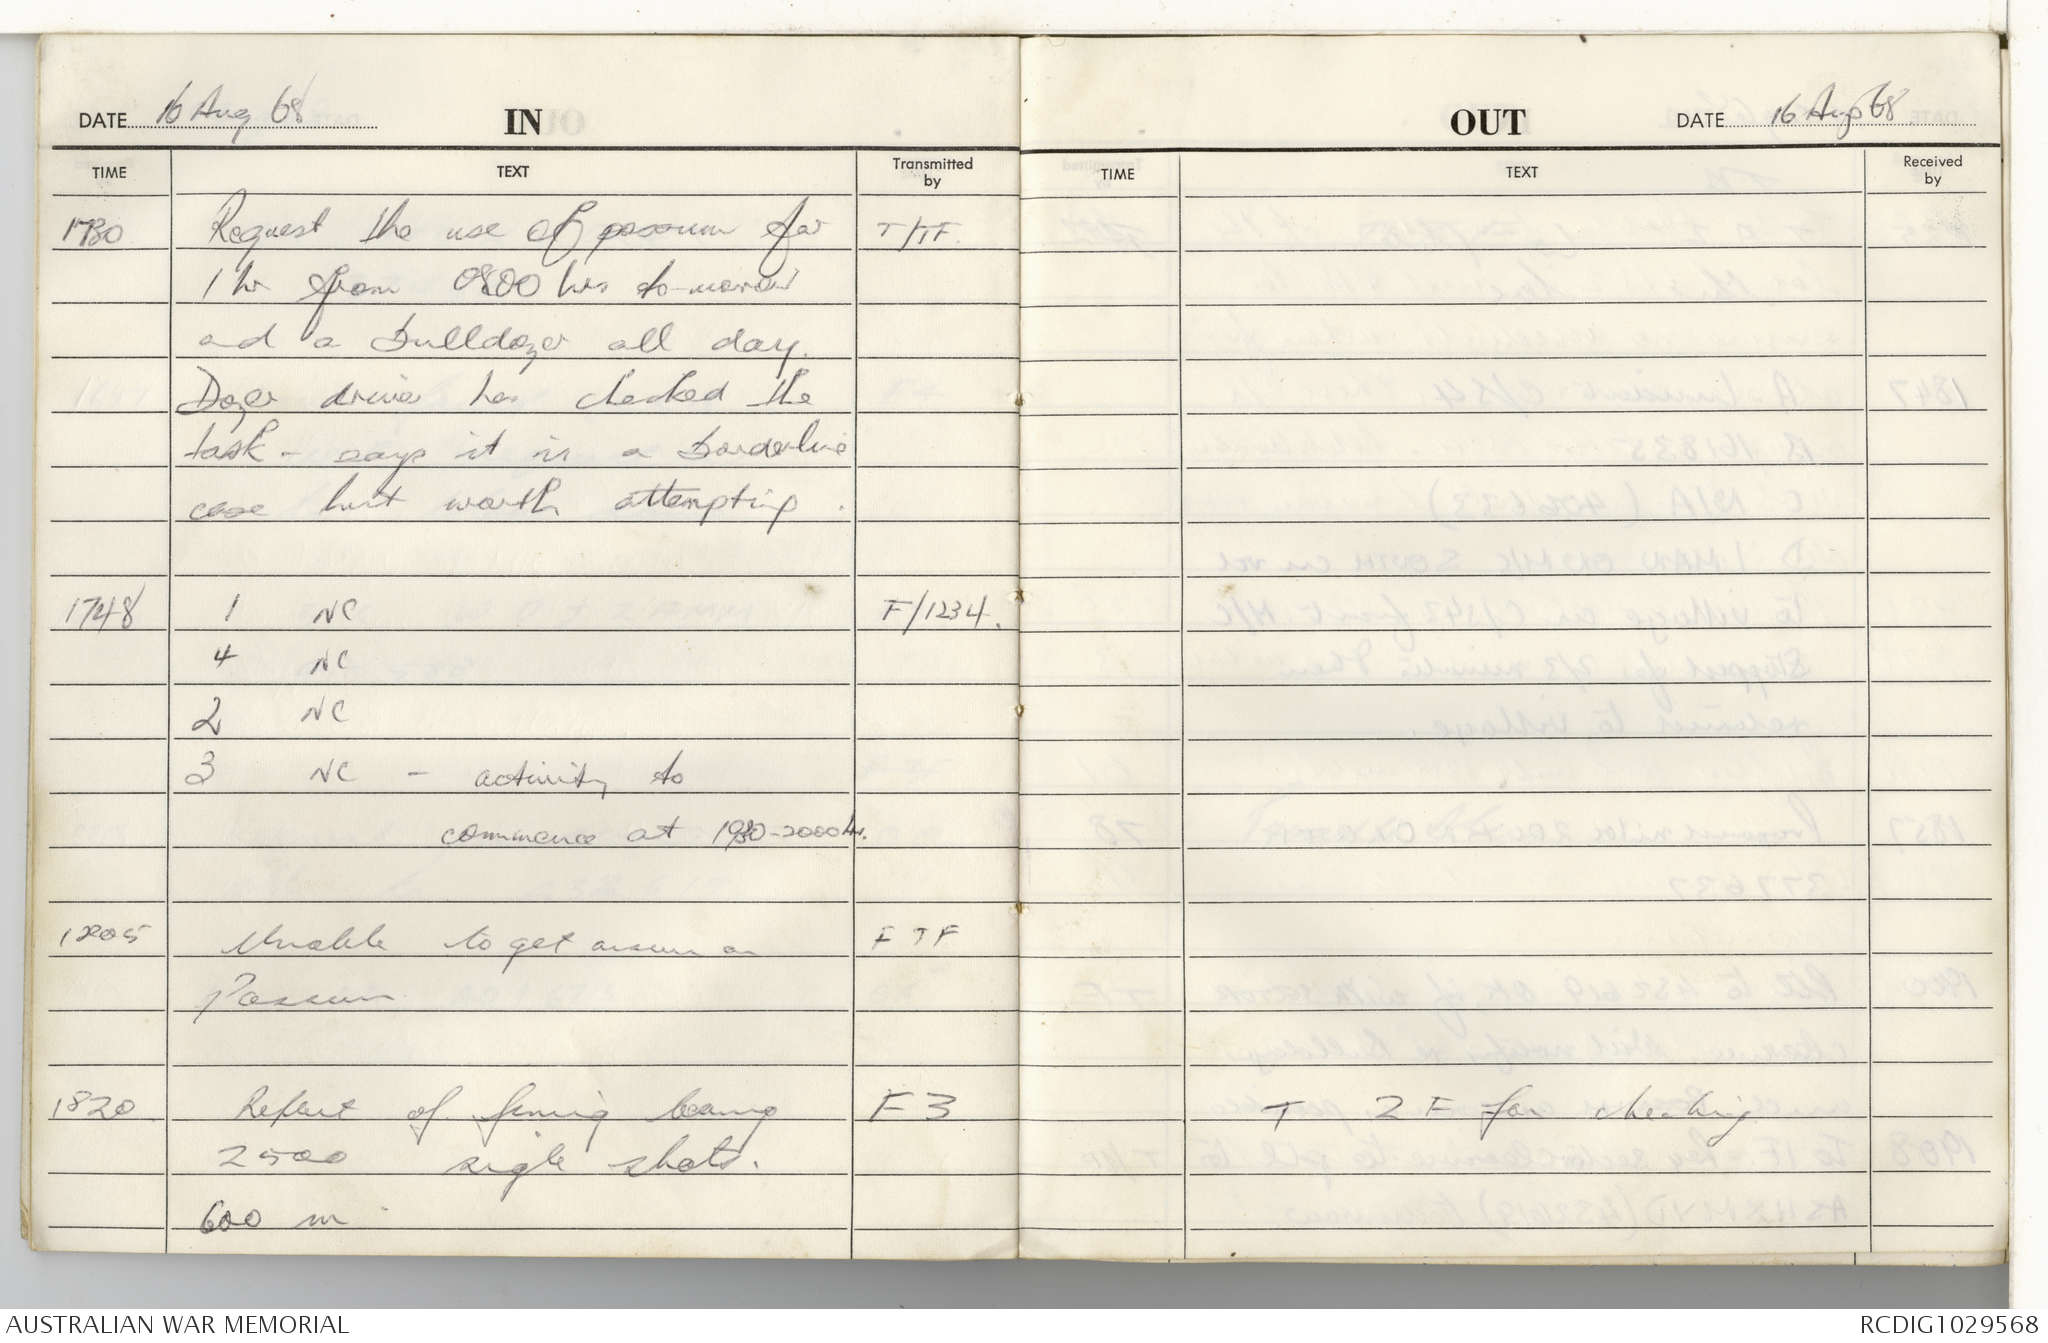 DATE 16 Aug 68 IN
TIME TEXT Transmitted by
1730 Request the use of possum for T/TF
1 hr from 0800 hrs to-morrow
and a bulldozer all day.
Dozer driver has checked the
task - says it is a borderline
case but worth attempting.
1748 1 NC F/1234.
4 NC
2 NC
3 NC - activity to
commence at 1930-2000 hrs.
1805 Unable to get answer on F T F
Possum
1820 Report of firing bearing F 3
2500 single shots.
600 m
OUT DATE 16 Aug 68
TIME TEXT Received by
T 2 F for checking
AUSTRALIAN WAR MEMORIAL
RCDIG1029568